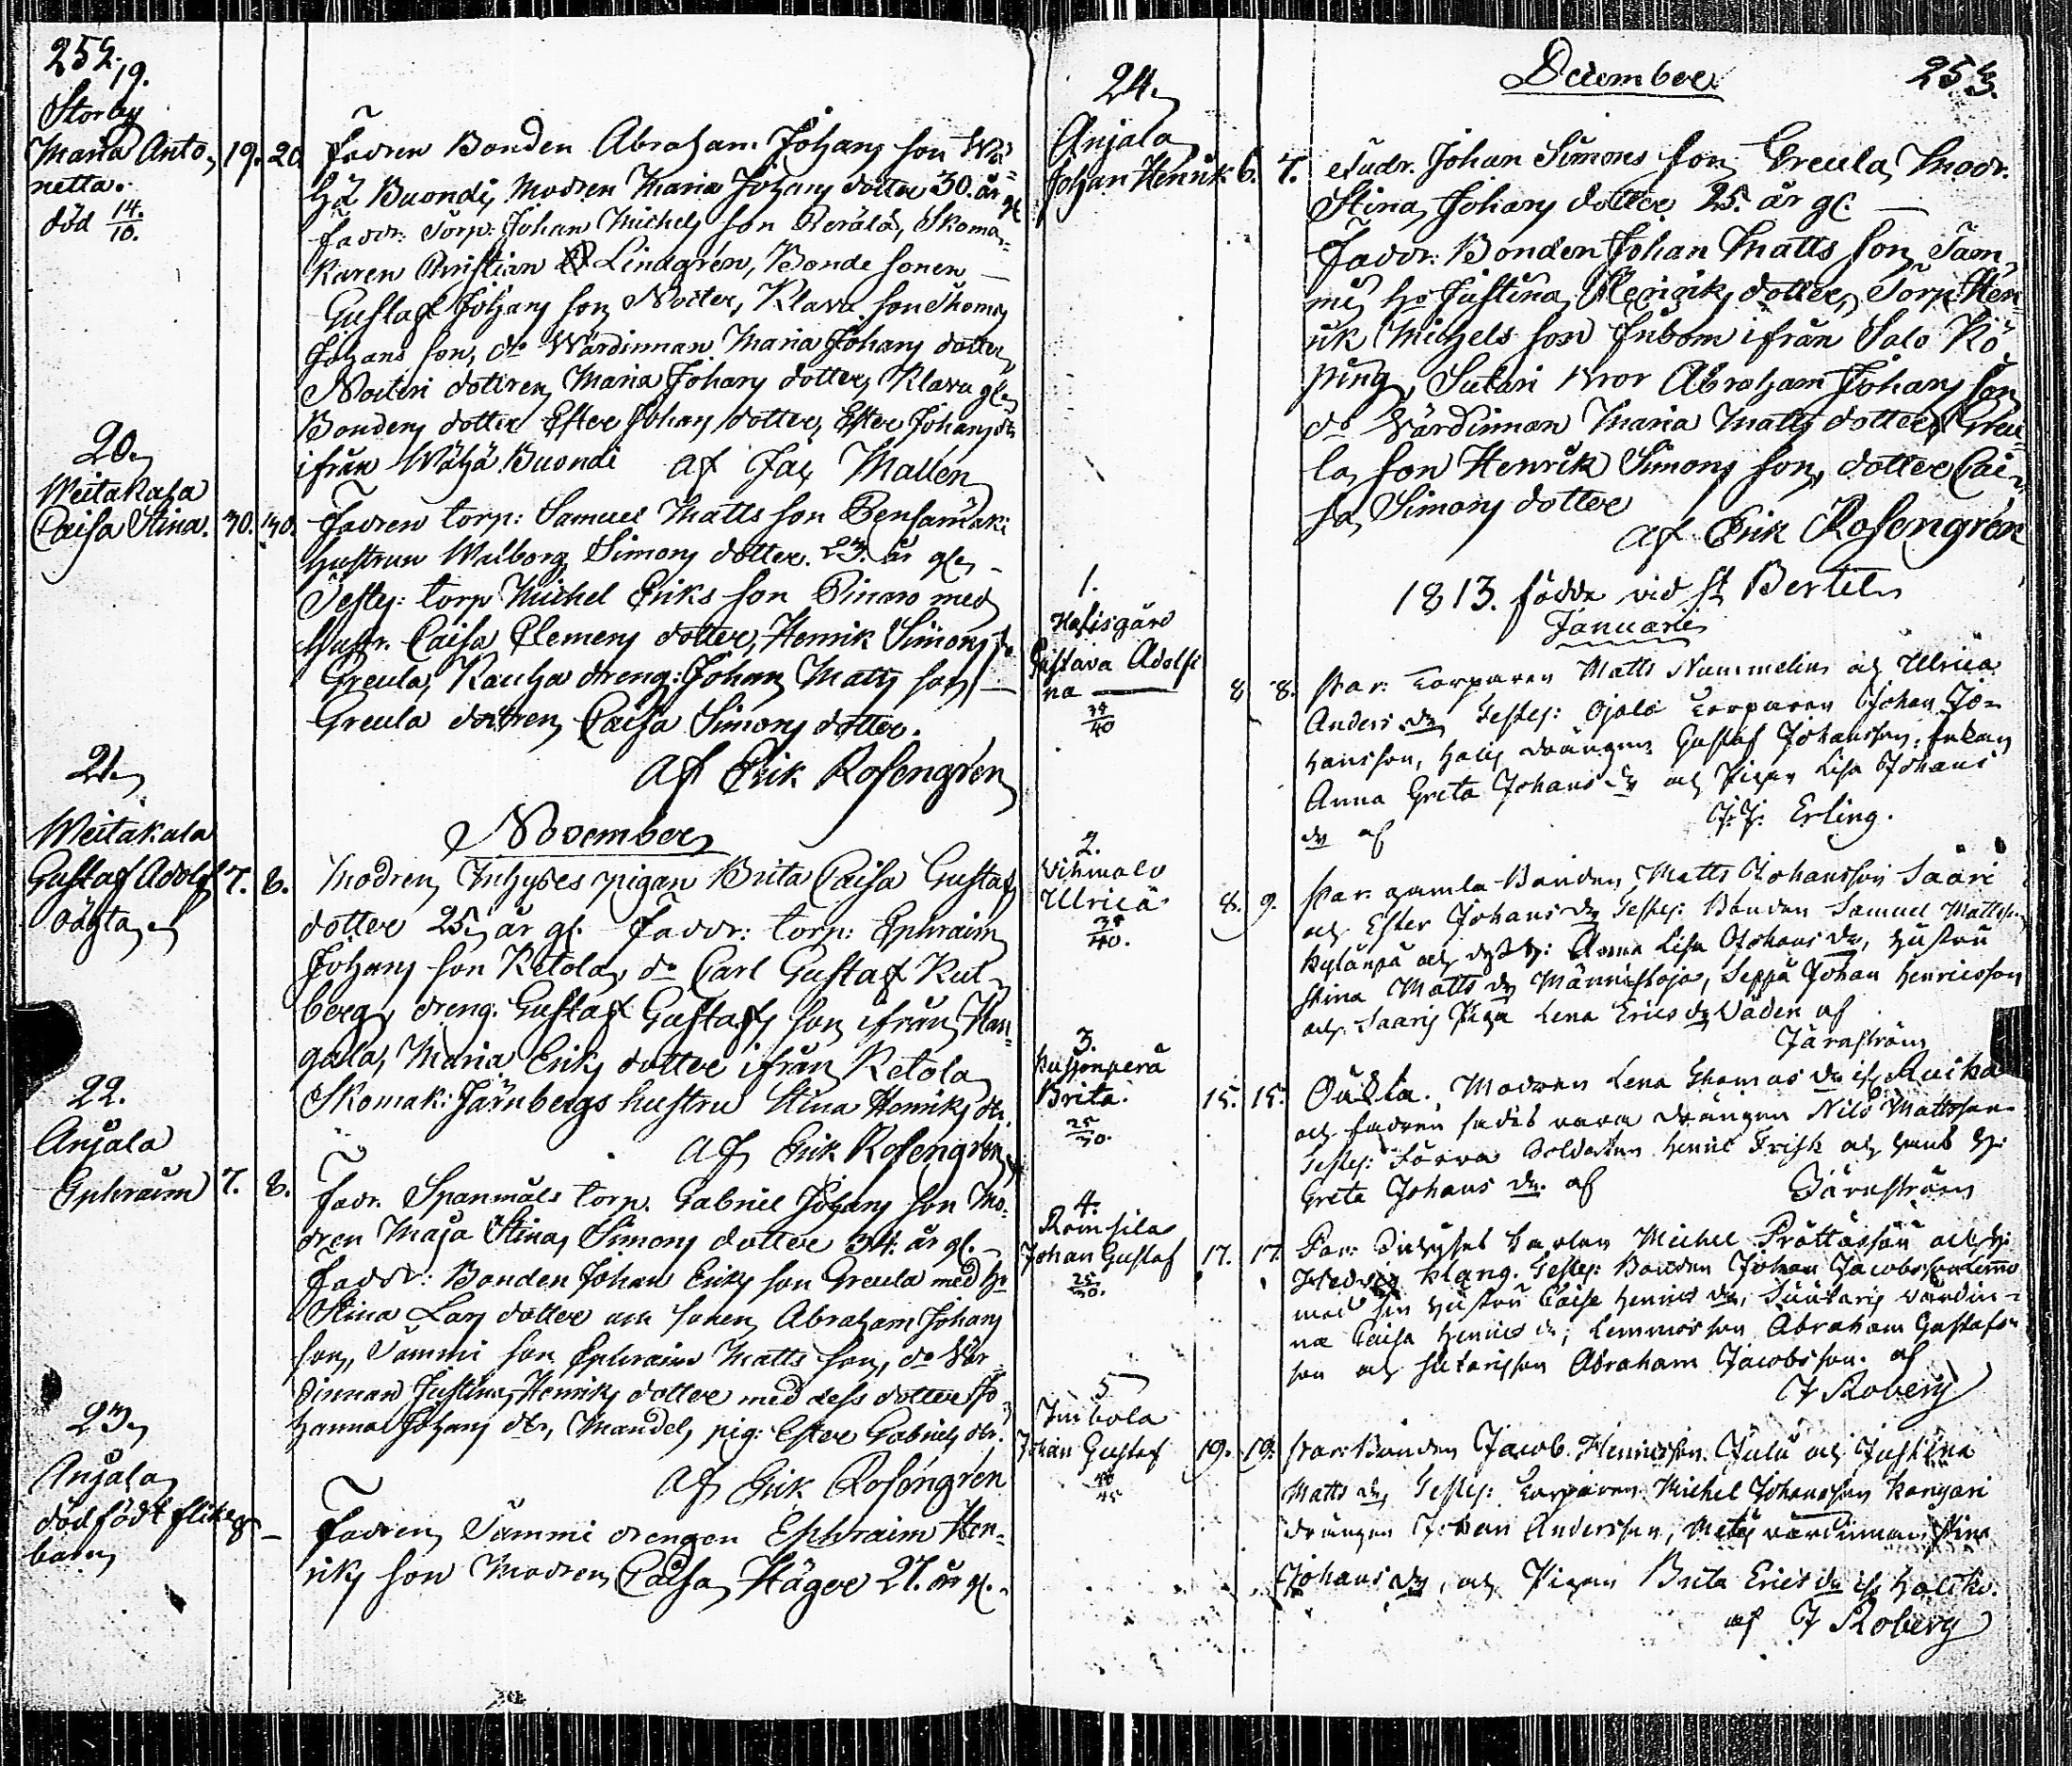 252.
19.
Storby
Maria Anto-
netta.
död 14/10.
19. 20.
Fadren Bonden Abraham Johans son Wä-
hä Buondi, Modren Maria Johans dotter 30. år gl.
Faddr: Torp: Johan Michels son Perälä, Skoma-
karen Christian Lindgrén, Bonde sonen
Gustaf Johans son Noiter, Klava son Thomas
Johans son, do Wärdinnan Maria Johans dotter
Noiteri dottren Maria Johans dotter, Klava gl.
Bondens dotter Ester Johans dotter, Ester Johans dr
ifrån Wähä Buondi af Jac Mallen
20.
Weitakala
Caisa Stina. 30. 30.
Fadren torp: Samuel Matts son Pensamäki
hustrun Walborg Simons dotter. 23. år gl.
Testes: torp Michel Eriks son Pinaro med
hustr. Caisa Clemens dotter, Henrik Simons s.
Greula, Rauha dreng: Johan Matts son
Greula dottren Caisa Simons dotter.
af Erik Rosengrén
November
21.
Weitakala
Gustaf Adolf 7. 8.
oägta
Modren Inhyses pigan Brita Caisa Gustafs
dotter 25. år gl. Faddr: torp: Ephraim
Johans son Ketola, do Carl Gustaf Kul-
berg, dreng. Gustaf Gustafs son ifrån Kan-
gala, Maria Eriks dotter ifrån Ketola
Skomak: Järnbergs hustru Stina Henriks dr.
af Erik Rosengrén
22.
Anjala
Ephraim 7. 8.
Fadr. Spanmåls torp. Gabriel Johans son Mo-
dren Maja Stina Simons dotter 34. år gl.
Faddr: Bonden Johan Eriks son Greula med ho
Stina Lars dotter och sonen Abraham Johans
son, Tammi son Ephraim Matts son, do Vär-
dinnan Justina Henriks dotter med dess dotter Jo-
hanna Johans dtr, Mandel, pig: Ester Gabriels dtr.
af Erik Rosengrén
23.
Anjala
dödfödt flicke
barn
Fadren Tammi drengen Ephraim Hen-
riks son Modren Caisa Häger 27. år gl.
December
253.
24.
Anjala
Johan Henrik 6. 7.
Fadr. Johan Simons son Greula, Modr.
Stina Johans dotter 25. år gl.
Faddr: Bonden Johan Matts son Tam-
mi, ho Justina Henriks dotter, Torp: Hen-
rik Michels son Fribom ifrån Salo Kö-
ping, Sutari bror Abraham Johans son
do Värdinnan Maria Matts dotter, Greu-
la son Henrik Simons son, dotter Cai-
sa Simons dotter
af Erik Rosengrén
1813. födde vid St Bertels
Januarii
1.
Halisgård
Gustava Adolfi
na
8 8.
Par: Torparen Matts Nummelin och Ulrica
Anders dr Testes: Ojala Torparen Johan Jo-
hansson, Halis drängen Gustaf Johansson,
Anna Greta Johans dr och Pigan Lisa Johans
dr af J: J: Erling.
2.
Vihmalo
Ulrica
8. 9.
Par: gamla Bonden Matts Johansson Saari
och Ester Johans dr Testes: Bonden Samuel Matts
Kylänpä och Anna Lisa Johans dr, hustru
Stina Matts dr Männistoja, Seppä Johan Henricsson
och Saaris Piga Lena Erics dr Väden af
Järnström
3.
Brita
15. 15.
25/30.
Oäkta. Modren Lena Thomas dr if. Ruika
och fadren sades vara drängen Nils Mattsson
Testes: Torra Soldaten Henric Frisk och hans h:
Greta Johans dr. af Järnström
4.
Romsila
Johan Gustaf 17. 17
25/30.
Par: Inhyses karlen Michel Pråttåssån och h:
Hedvig Klang. Testes: Bonden Johan Jacobsson Lemmo
med sin hustru Caisa Henrics dr, Suutaris värdin-
na Caisa Henrics dr, Lemmos son Abraham Gustafs-
son och Sutarisson Abraham Jacobsson. af
J Roberg
5
Junbola
Johan Gustaf 19. 19.
Par: Bonden Jacob Henricsson Julu och Justina
Matts dr, Testes: Torparen Michel Johansson Kangari
drängen Johan Andersson, värdinnan Stina
Johans dr, och Pigan Brita Erics dr if. Halikko.
af J Roberg